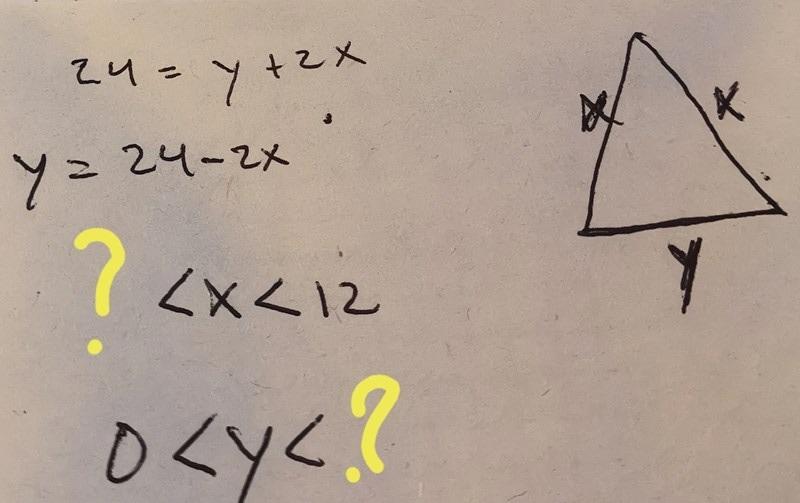 24 = y + 2x
y = 24 - 2x
? < x < 12
0 < y < ?
x
x
y